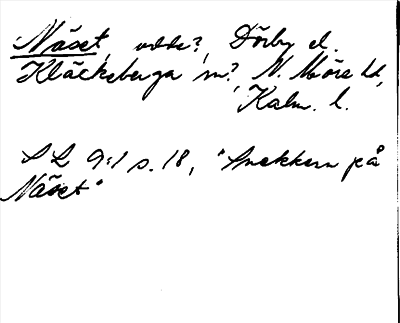 Näset, udde?, Dörby el.
Kläckeberga sn?, N. Möre hd,
Kalm. l.
SL 9:1 s. 18, "Snekkern på
Näset"